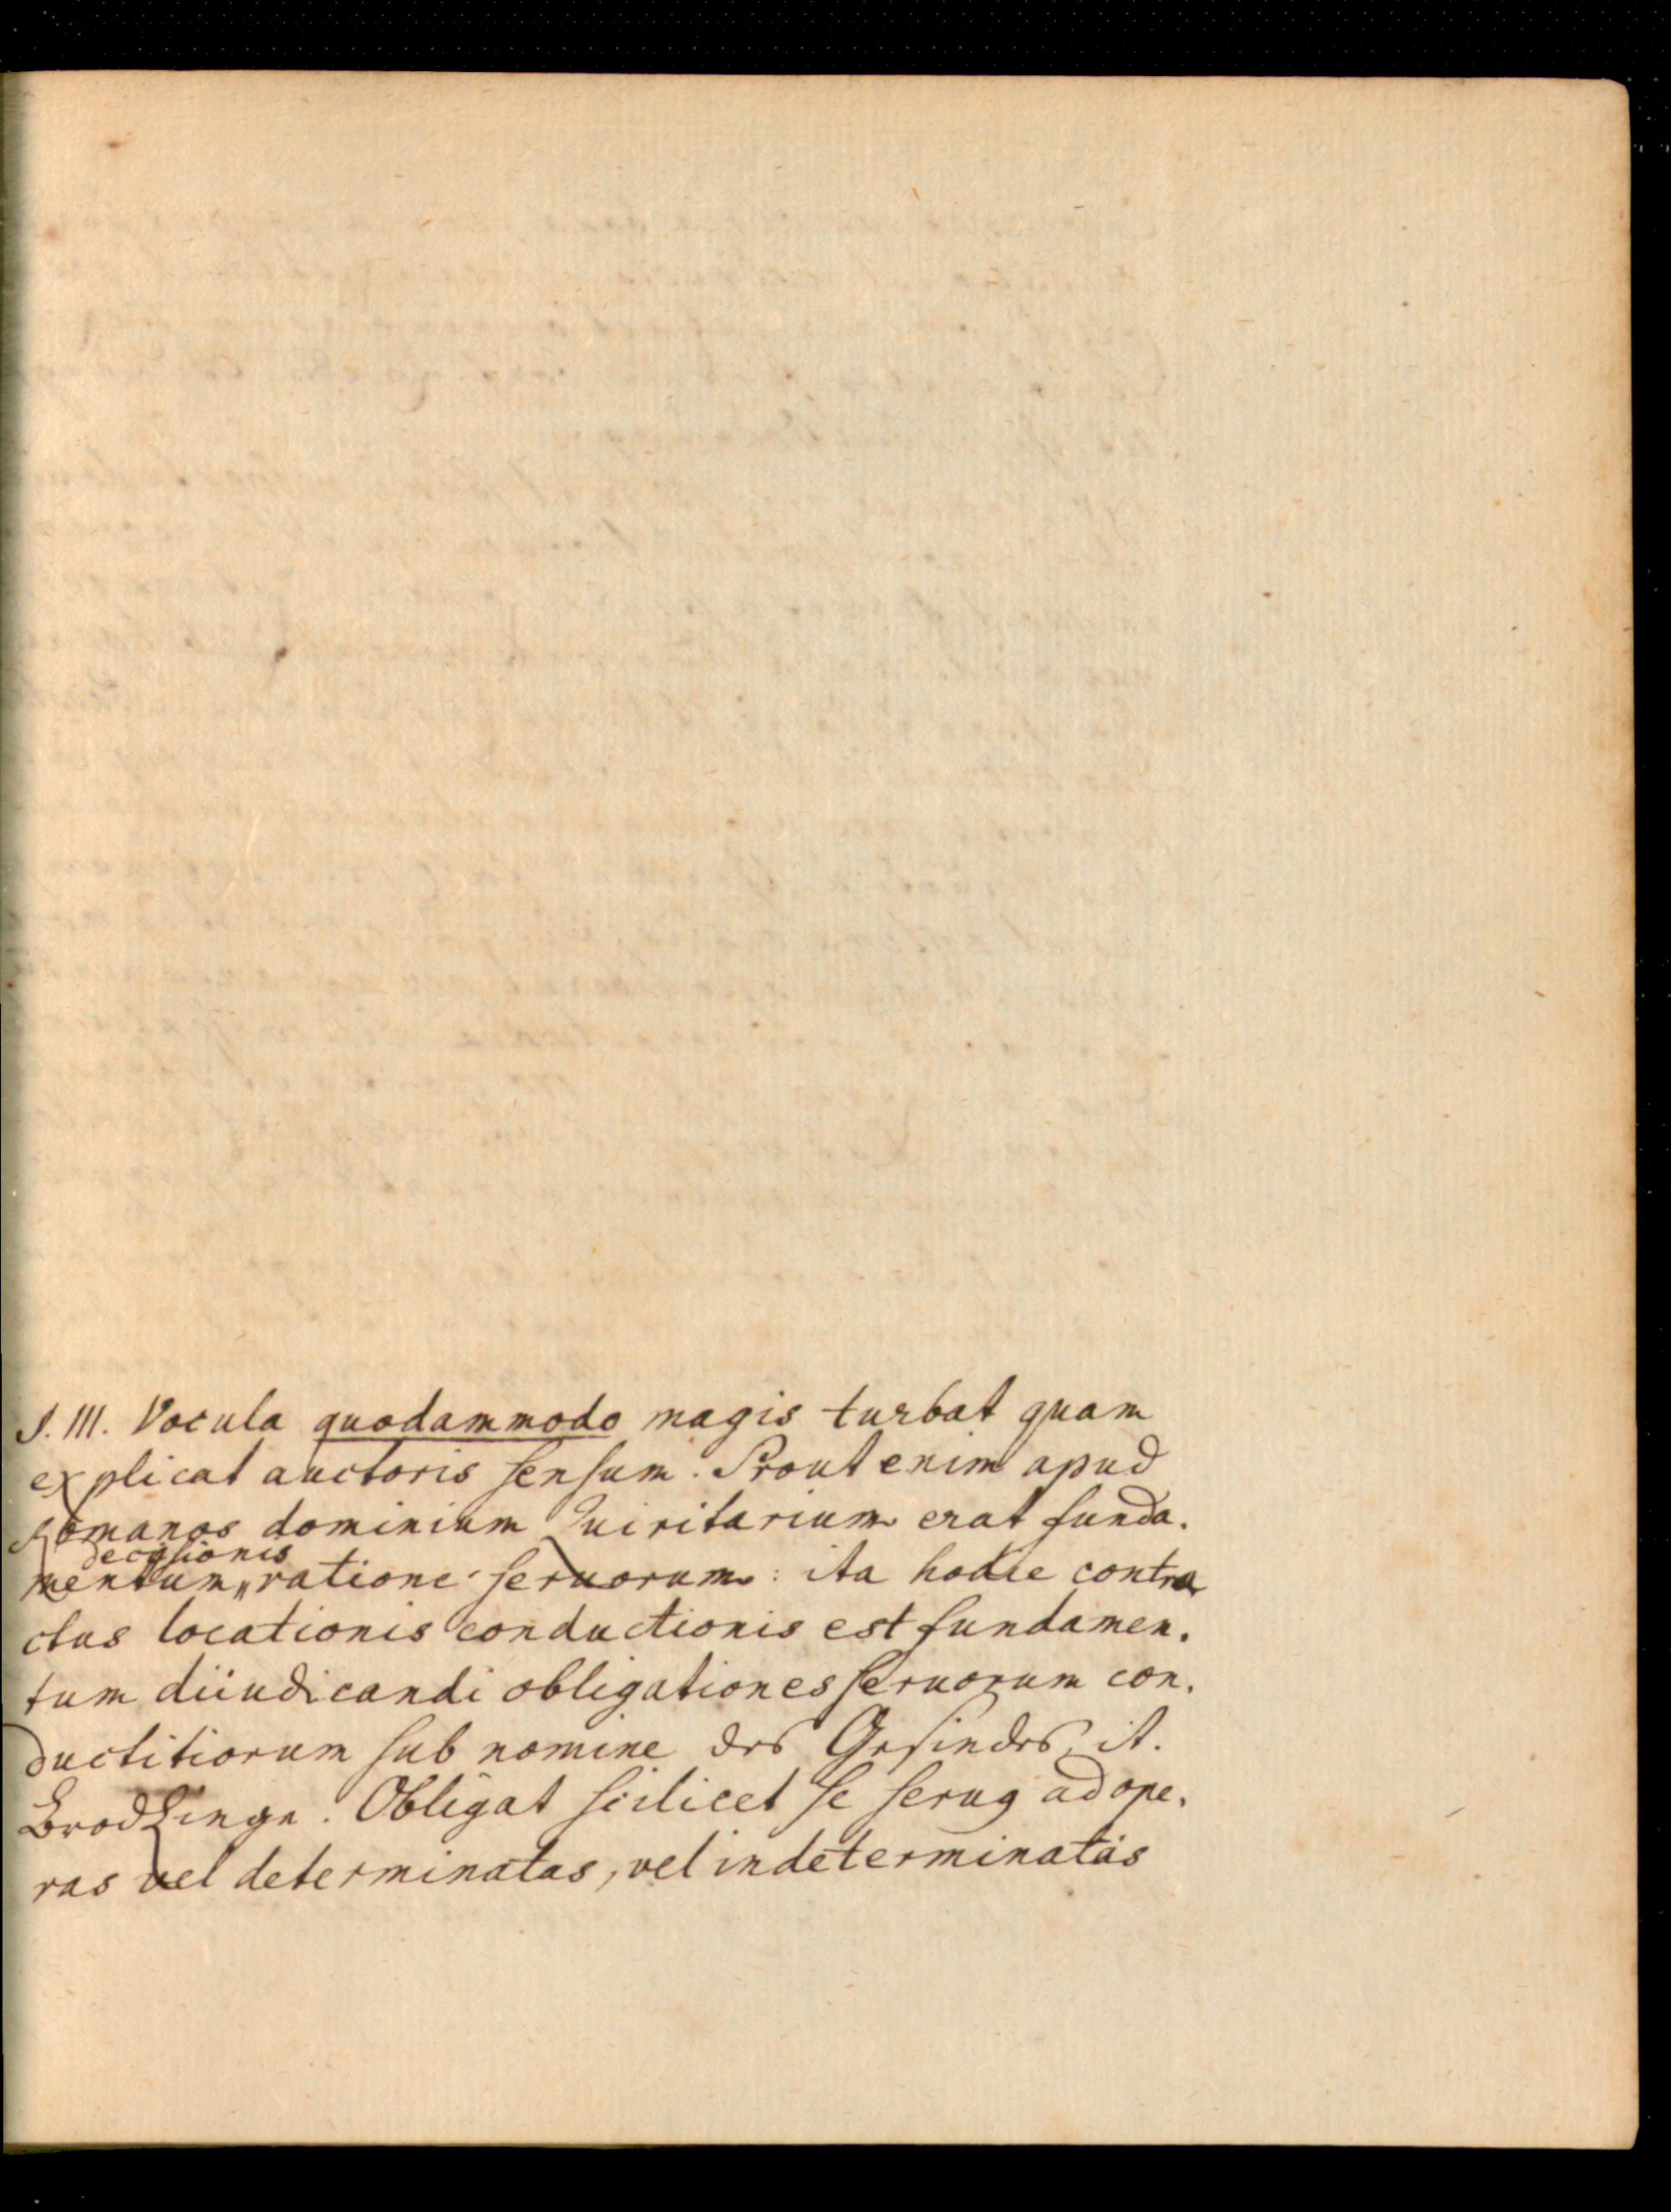 §. III. Vocula quodammodo magis turbat quam
explicat auctoris sensum. Prout enim apud
Romanos dominium Quiritarium erat funda-
decisionis
mentum ratione seruorum: ita hodie contra
ctus locationis conductionis est fundamen-
tum diiudicandi obligationes seruorum con-
ductitiorum sub nomine des Gesindes, it.
Brodlinge. Obligat scilicet se seruꝰ ad ope-
ras vel determinatas, vel indeterminatas